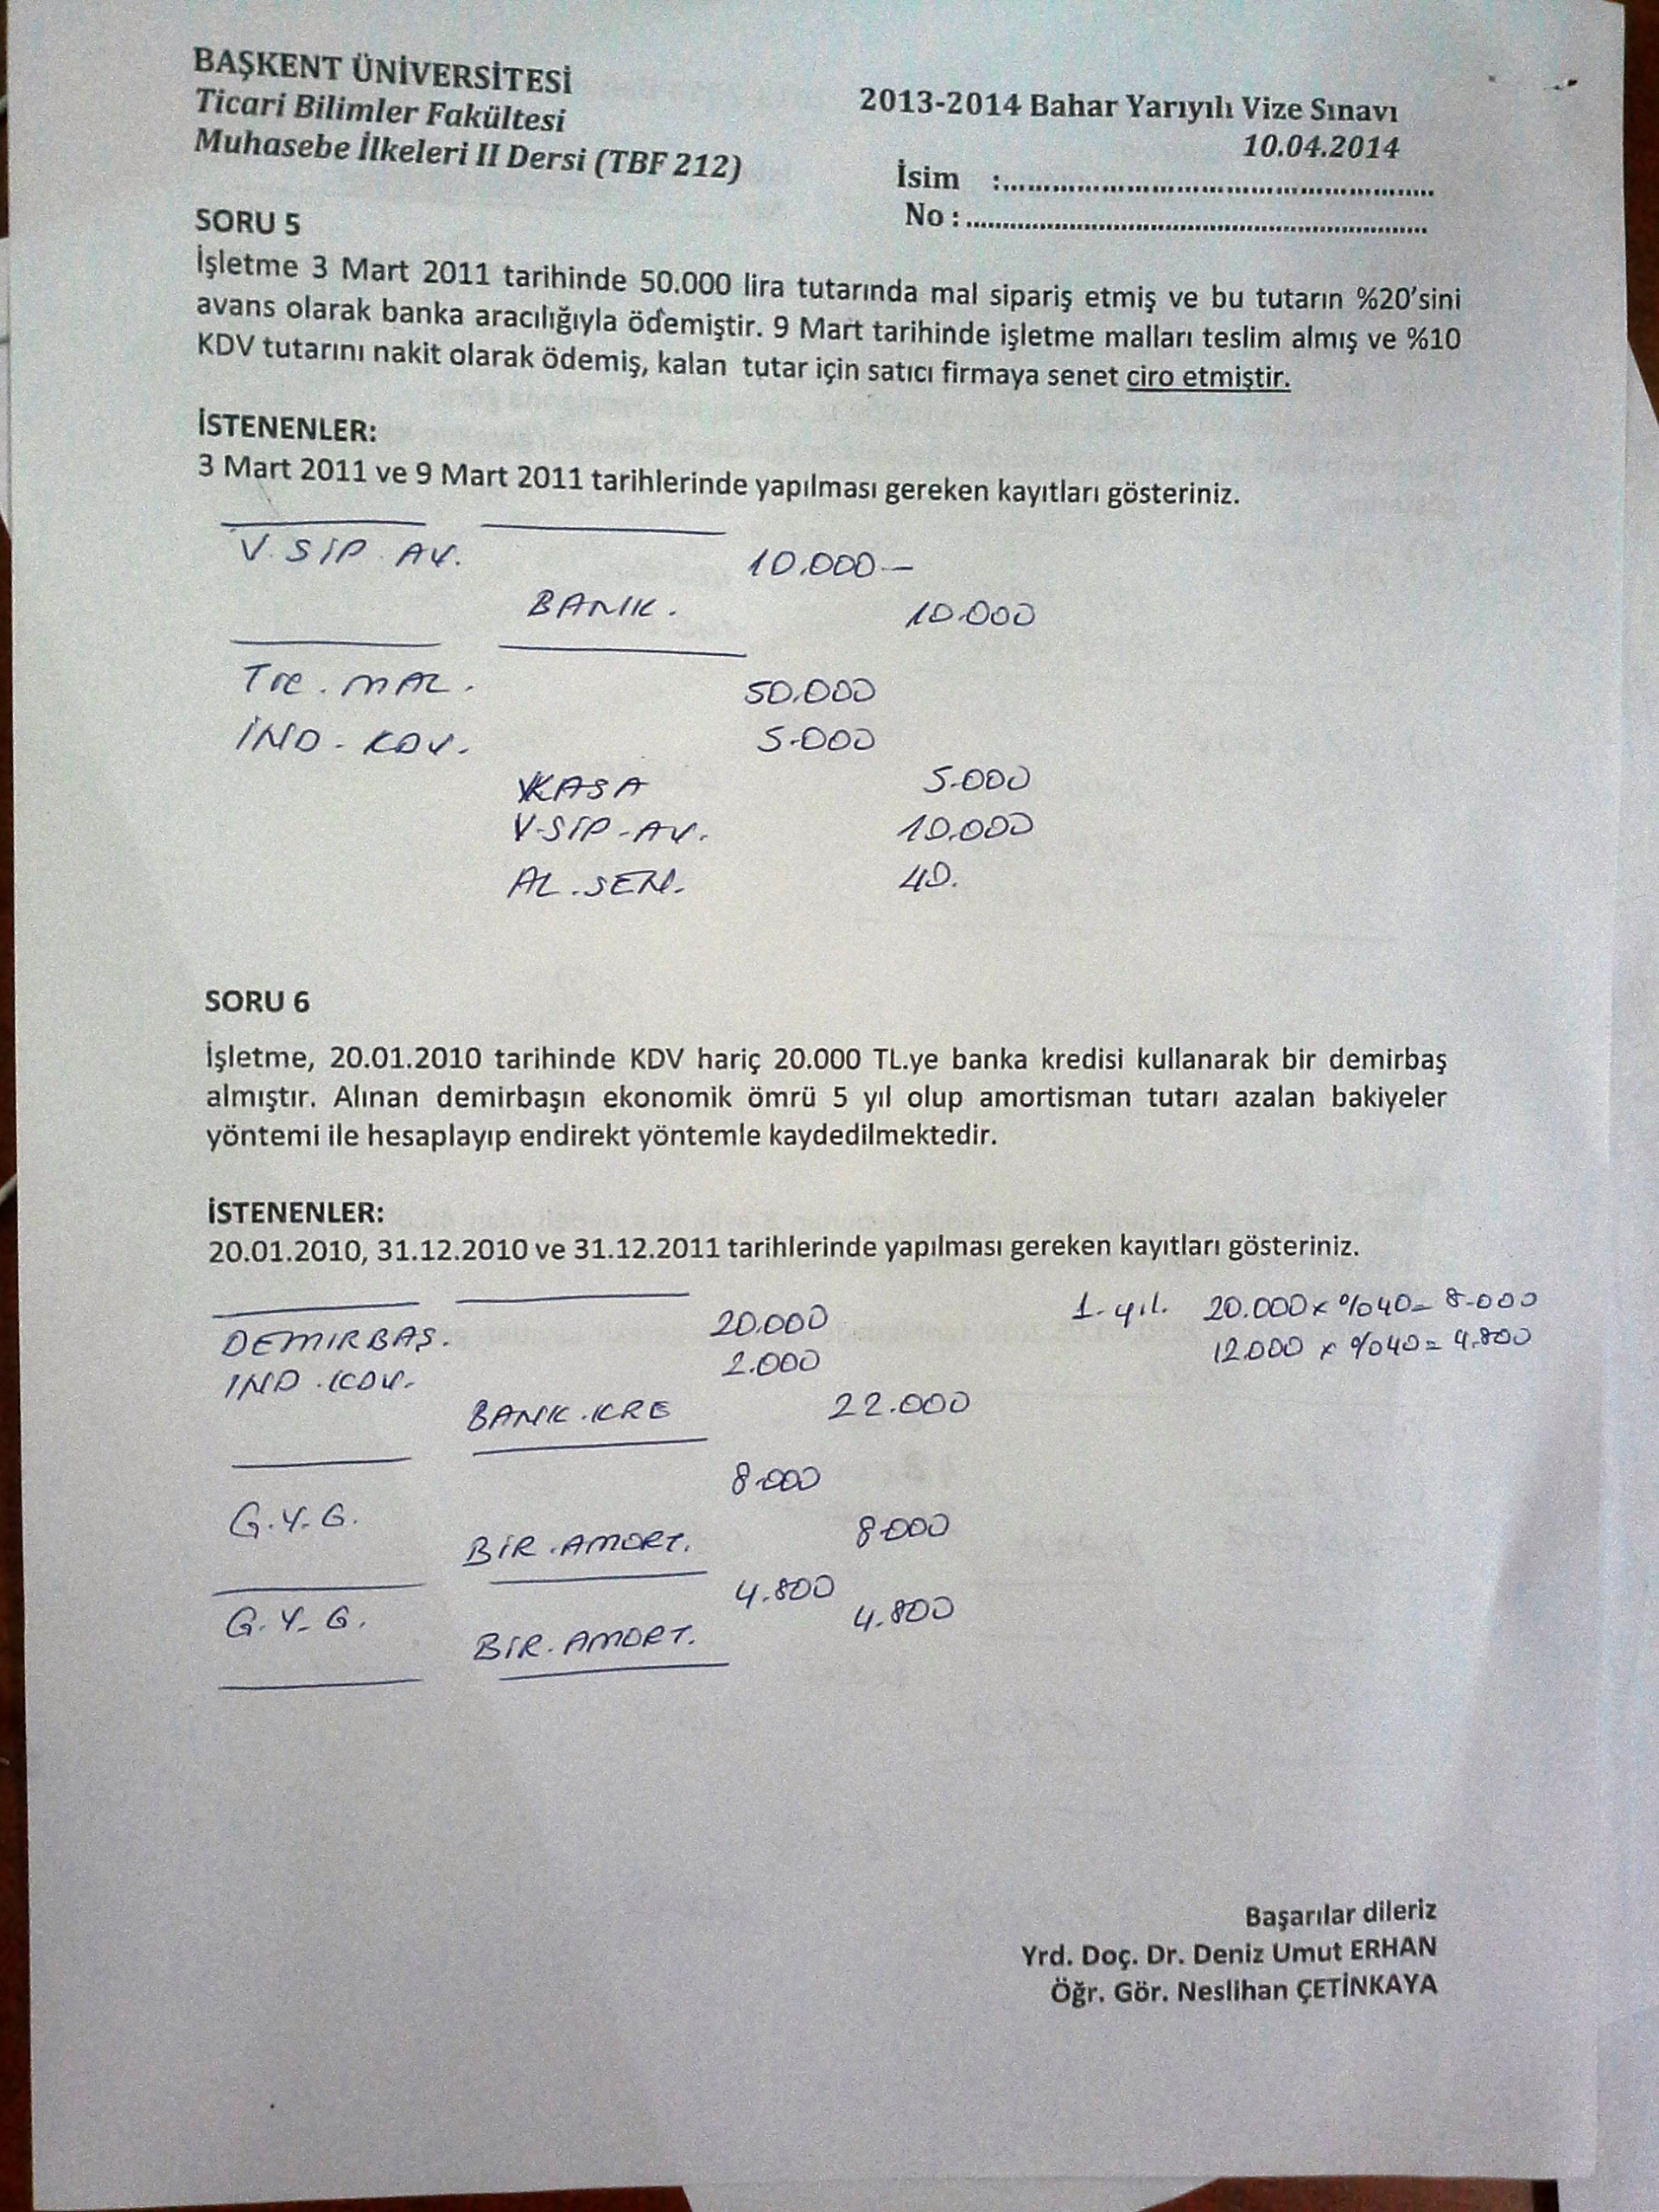 BAŞKENT ÜNİVERSİTESİ
Ticari Bilimler Fakültesi
Muhasebe İlkeleri II Dersi (TBF 212)
2013-2014 Bahar Yarıyılı Vize Sınavı
10.04.2014
İsim :..........................................................
No :................................................................
SORU 5
İşletme 3 Mart 2011 tarihinde 50.000 lira tutarında mal sipariş etmiş ve bu tutarın %20'sini
avans olarak banka aracılığıyla ödemiştir. 9 Mart tarihinde işletme malları teslim almış ve %10
KDV tutarını nakit olarak ödemiş, kalan tutar için satıcı firmaya senet ciro etmiştir.
İSTENENLER:
3 Mart 2011 ve 9 Mart 2011 tarihlerinde yapılması gereken kayıtları gösteriniz.
V. SİP. AV. 10.000.—
BANK. 10.000
Tic. MAL. 50.000
İND. KDV. 5.000
KASA 5.000
V-SİP-AV. 10.000
AL. SEN. 40.
SORU 6
İşletme, 20.01.2010 tarihinde KDV hariç 20.000 TL.ye banka kredisi kullanarak bir demirbaş
almıştır. Alınan demirbaşın ekonomik ömrü 5 yıl olup amortisman tutarı azalan bakiyeler
yöntemi ile hesaplayıp endirekt yöntemle kaydedilmektedir.
İSTENENLER:
20.01.2010, 31.12.2010 ve 31.12.2011 tarihlerinde yapılması gereken kayıtları gösteriniz.
DEMIRBAŞ. 20.000
IND. KDV. 2.000
BANK. KRE 22.000
1. yıl. 20.000 x %40= 8.000
12.000 x %40= 4.800
G.Y.G. 8.000
BİR. AMORT. 8.000
G.Y.G. 4.800
BİR. AMORT. 4.800
Başarılar dileriz
Yrd. Doç. Dr. Deniz Umut ERHAN
Öğr. Gör. Neslihan ÇETİNKAYA